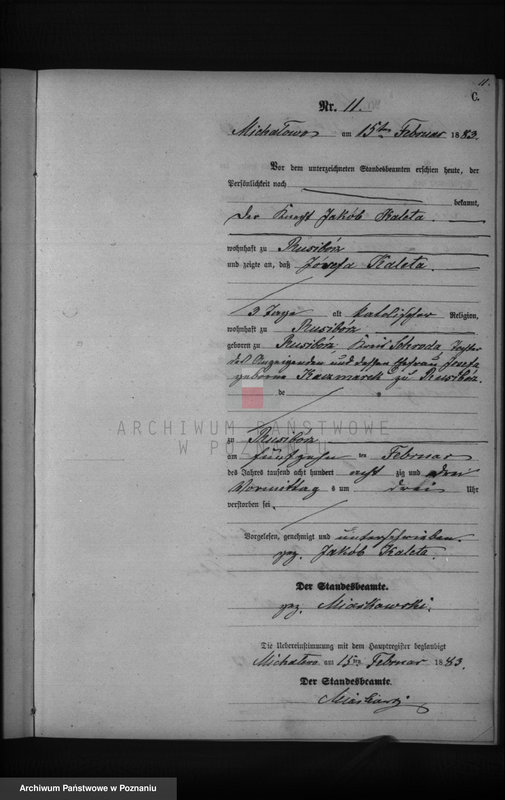 11.
C.
Nr. 11.
Michałowo am 15ten Februar 1883.
Vor dem unterzeichneten Standesbeamten erschien heute, der
Persönlichkeit nach
bekannt,
Der Knecht Jakób Kaleta
wohnhaft zu Rusibórz
und zeigte an, daß Józefa Kaleta
3 Tage alt katolischer Religion,
wohnhaft zu Rusibórz
geboren zu Rusibórz, Kreis Schroda, Tochter
des Anzeigenden und dessen Ehefrau Josefa
geborne Kaczmarek zu Rusibórz.
de
zu Rusibórz
am fünfzehn ten Februar
des Jahres tausend acht hundert acht zig und drei
Vormittag s um drei Uhr
verstorben sei.
Vorgelesen, genehmigt und unterschrieben.
gez. Jakób Kaleta.
Der Standesbeamte.
gez. Miaskowski.
Die Uebereinstimmung mit dem Hauptregister beglaubigt
Michałowo am 15ten Februar 1883.
Der Standesbeamte.
ARCHIWUM PAŃSTWOWE
W POZNANIU
Archiwum Państwowe w Poznaniu